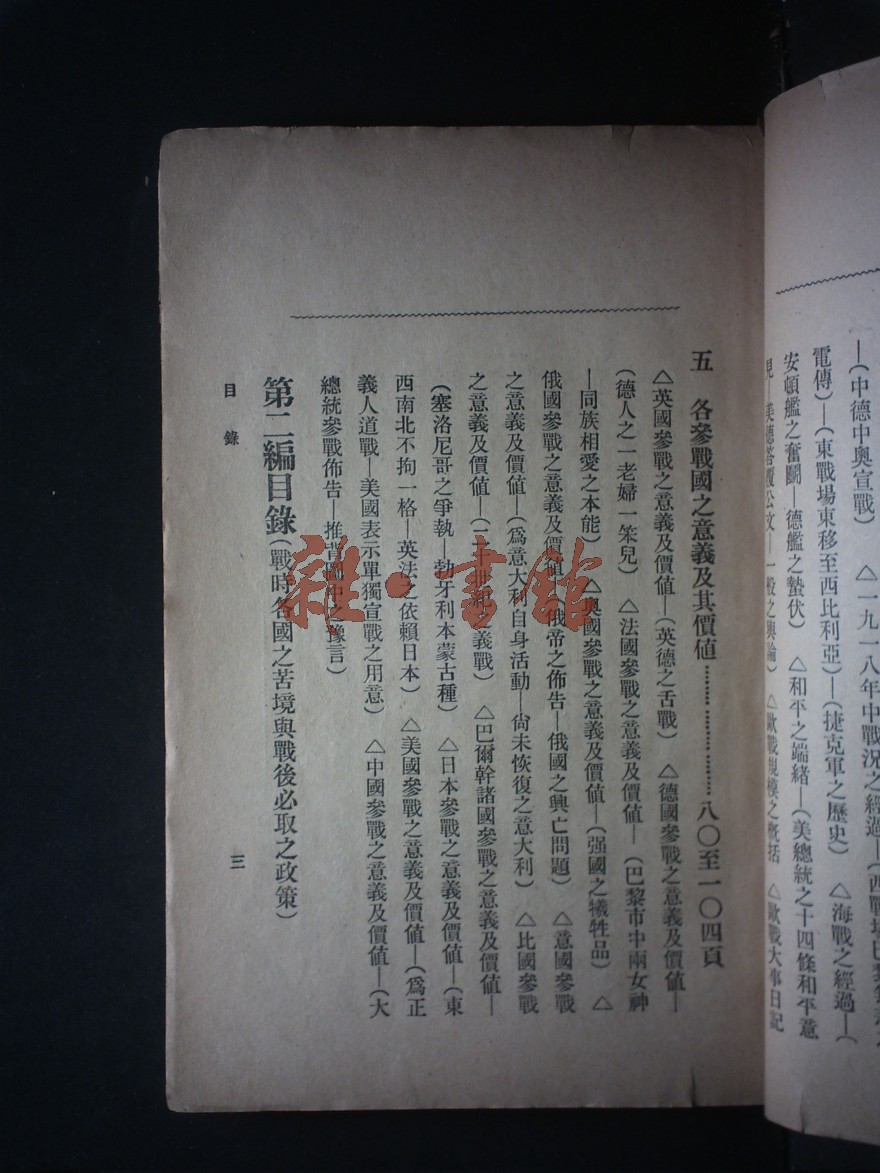 —(中德中奧宣戰)　△一九一八年中戰況之經過—(西戰場
電傳)—(東戰場東移至西比利亞)—(捷克軍之歷史)　△海戰之經過—(
安頓艦之奮鬭—德艦之蟄伏)　△和平之端緒—(美總統之十四條和平意
見—美德答覆公文—一般之輿論)　△歐戰規模之概括　△歐戰大事日記
五　各參戰國之意義及其價値………………………八〇至一〇四頁
△英國參戰之意義及價値—(英德之舌戰)　△德國參戰之意義及價値—
(德人之一老婦一笨兒)　△法國參戰之意義及價値—(巴黎市中兩女神
—同族相愛之本能)　△奧國參戰之意義及價値—(强國之犧牲品)　△
俄國參戰之意義及價値—(俄帝之佈告—俄國之興亡問題)　△意國參戰
之意義及價値—(爲意大利自身活動—尙未恢復之意大利)　△比國參戰
之意義及價値—(二十世紀之義戰)　△巴爾幹諸國參戰之意義及價値—
(塞洛尼哥之爭執—勃牙利本蒙古種)　△日本參戰之意義及價値—(東
西南北不拘一格—英法之依賴日本)　△美國參戰之意義及價値—(爲正
義人道戰—美國表示單獨宣戰之用意)　△中國參戰之意義及價値—(大
總統參戰佈告—推背圖中之豫言)
第二編目錄(戰時各國之苦境與戰後必取之政策)
目錄
三
雜·書館